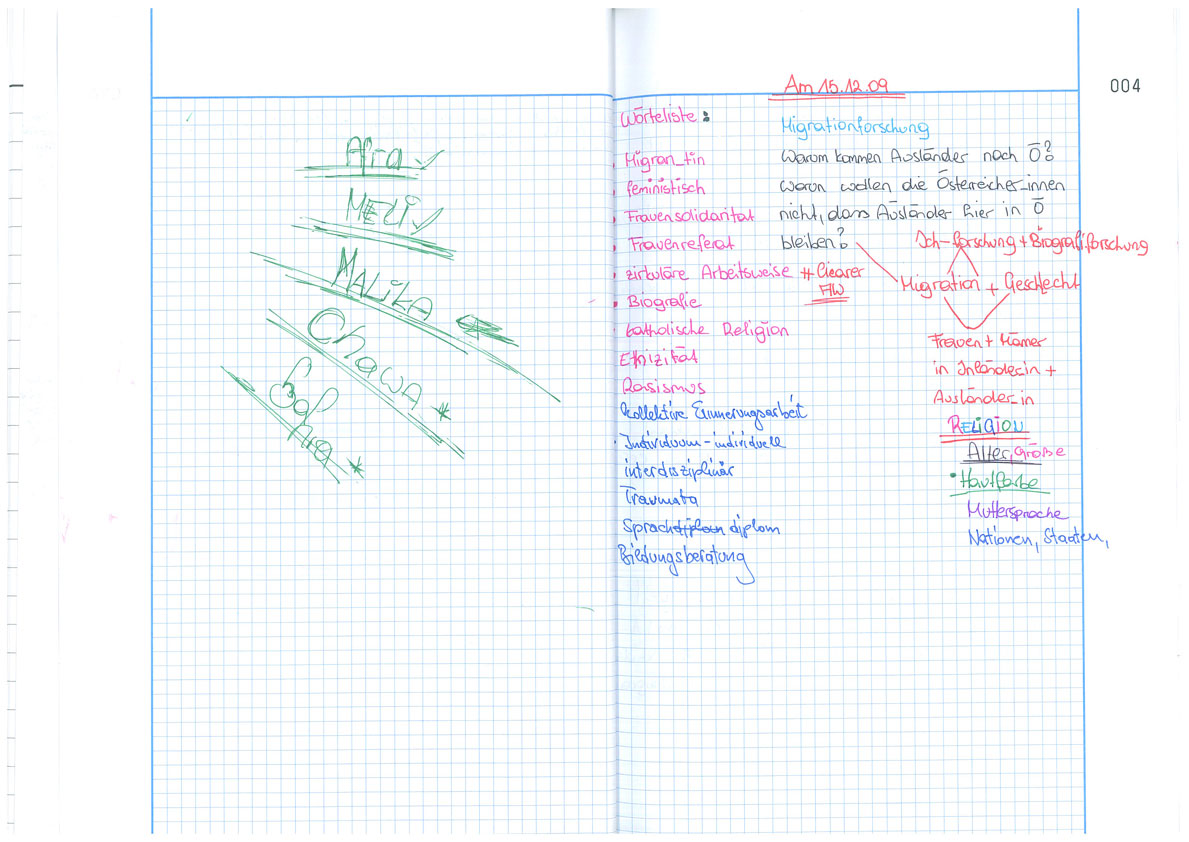 Afra
MELi
MALiKA
Chawa *
Sophia *
004
Am 15.12.09
Wörteliste:
Migran_tin
feministisch
Frauensolidarität
Frauenreferat
zirkuläre Arbeitsweise # Clearer
AW
Biografie
katholische Religion
Ethizität
Rasismus
kollektive Erinnerungsarbeit
Individuum - individuell
interdisziplinär
Traumata
Sprachdiplom diplom
Bildungsberatung
Migrationforschung
Warum kommen Ausländer nach Ö?
waron wollen die Österreicher_innen
nicht, dass Ausländer hier in Ö
bleiben?
Ich-forschung + Biografiforschung
Migration + Geschlecht
Frauen + Männer
in Inländerin +
Ausländer_in
RELiGiON
Alter, Größe
Hautfarbe
Muttersprache
Nationen, Staaten,